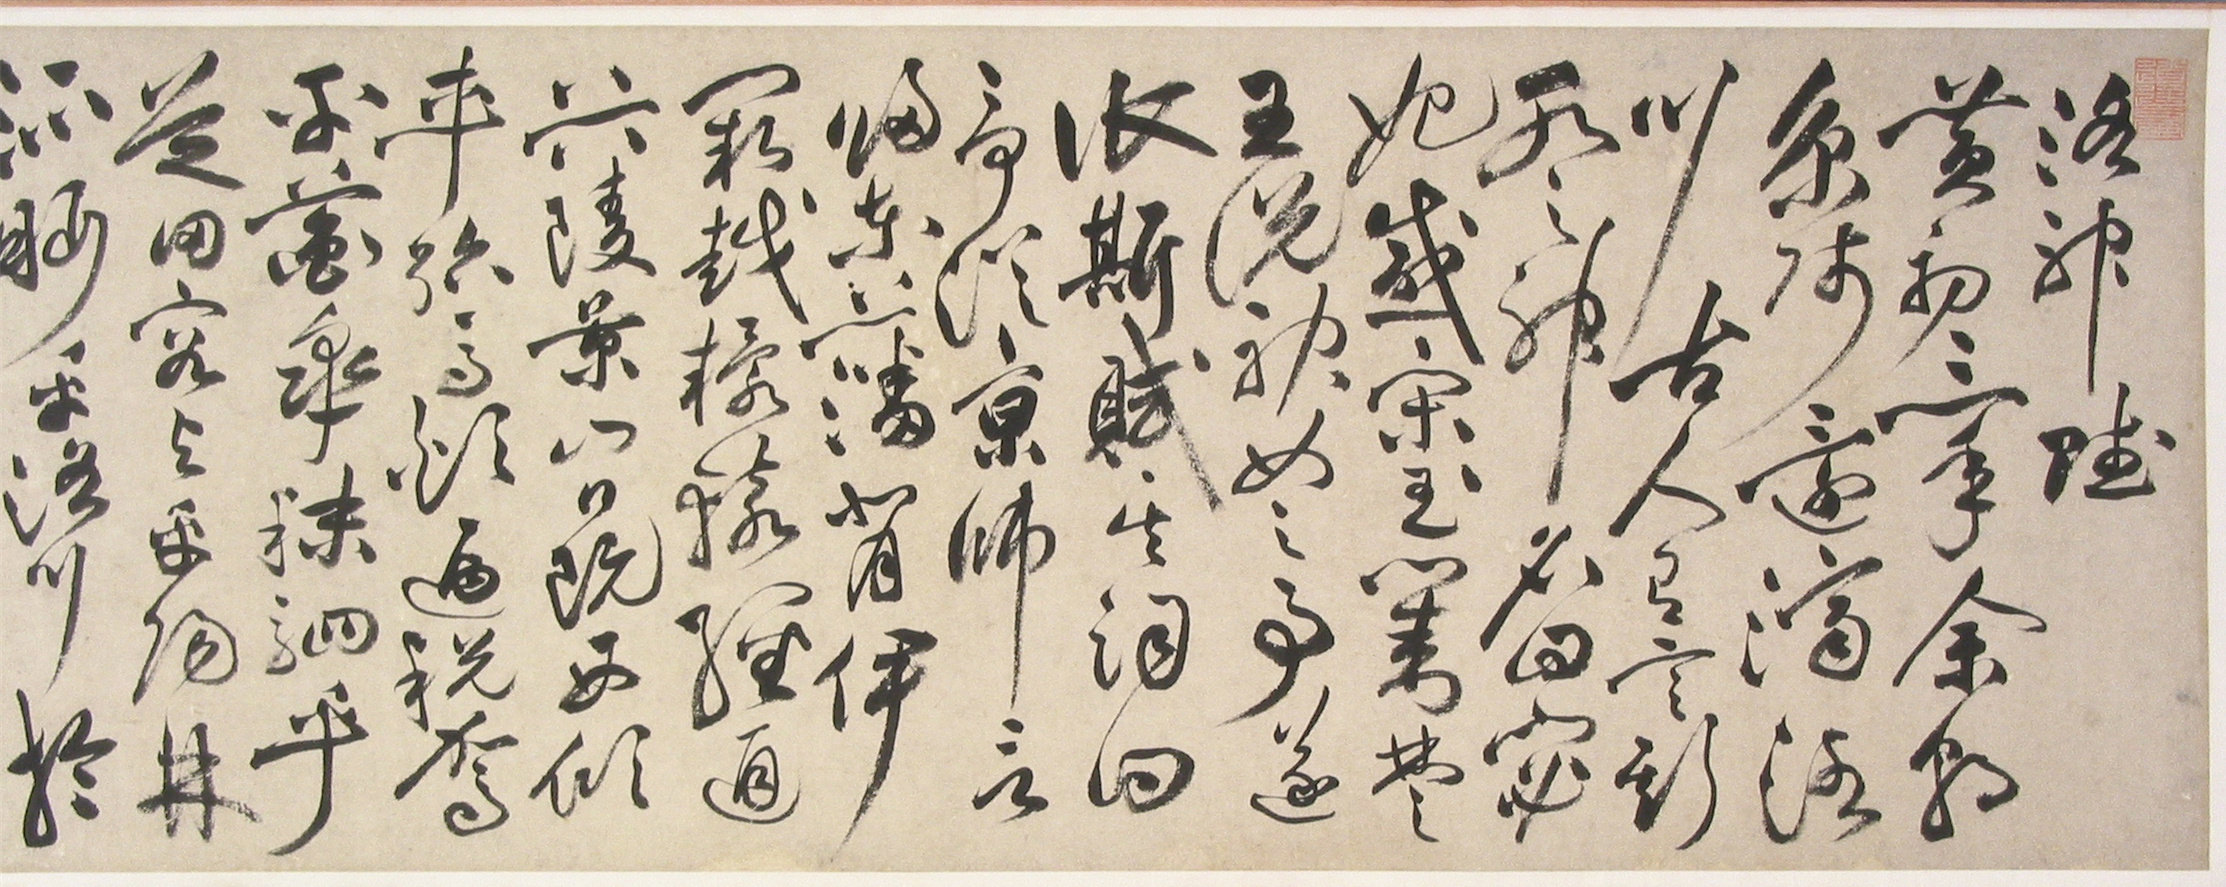 洛神賦
黃初三年余朝
京師還濟洛
川古人有言斯
水之神名曰宓
妃感宋玉對楚
王說神女之事遂
作斯賦其詞曰
予從京師言
歸東藩背伊
闕越轘轅經通
谷陵景山日既西傾
車殆馬煩迺稅駕
乎蘅皋秣駟乎
芝田容與乎陽林
流眄乎洛川於